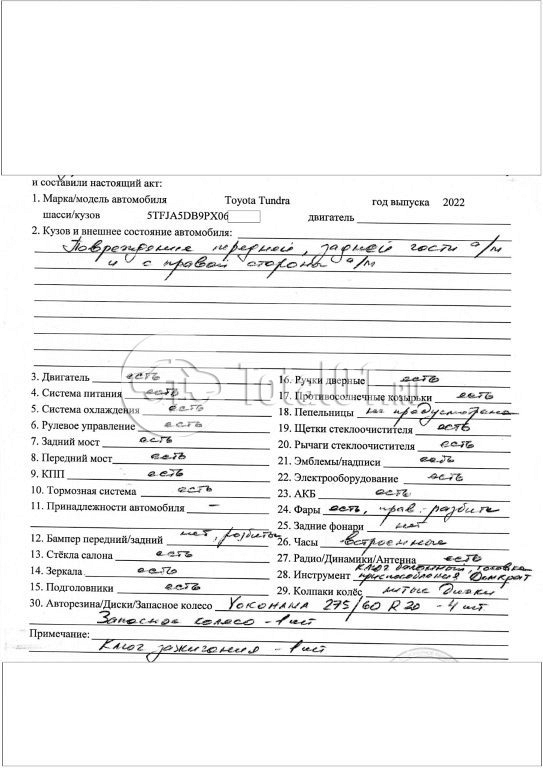 и составили настоящий акт:
1. Марка/модель автомобиля Toyota Tundra год выпуска 2022
шасси/кузов 5TFJA5DB9PX06 двигатель
2. Кузов и внешнее состояние автомобиля:
Повреждения передней, задней части а/м
и с правой стороны а/м
3. Двигатель есть
4. Система питания есть
5. Система охлаждения есть
6. Рулевое управление есть
7. Задний мост есть
8. Передний мост есть
9. КПП есть
10. Тормозная система есть
11. Принадлежности автомобиля –
12. Бампер передний/задний нет, разбитый
13. Стёкла салона есть
14. Зеркала есть
15. Подголовники есть
16. Ручки дверные есть
17. Противосолнечные козырьки есть
18. Пепельницы не предусмотрена
19. Щетки стеклоочистителя есть
20. Рычаги стеклоочистителя есть
21. Эмблемы/надписи есть
22. Электрооборудование есть
23. АКБ есть
24. Фары есть, прав. разбита
25. Задние фонари нет
26. Часы встроенные
27. Радио/Динамики/Антенна есть
28. Инструмент ключ балонный, головка
приспособления, Домкрат
29. Колпаки колёс литые диски
30. Авторезина/Диски/Запасное колесо YOKOHAMA 275/60 R 20 - 4 шт
Запасное колесо - 1 шт
Примечание:
Ключ зажигания - 1 шт
Total01.ru